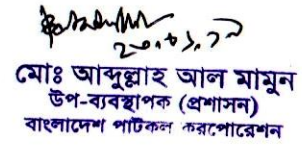 ২০.০১.১৯
মোঃ আব্দুল্লাহ আল মামুন
উপ-ব্যবস্থাপক (প্রশাসন)
বাংলাদেশ পাটকল করপোরেশন